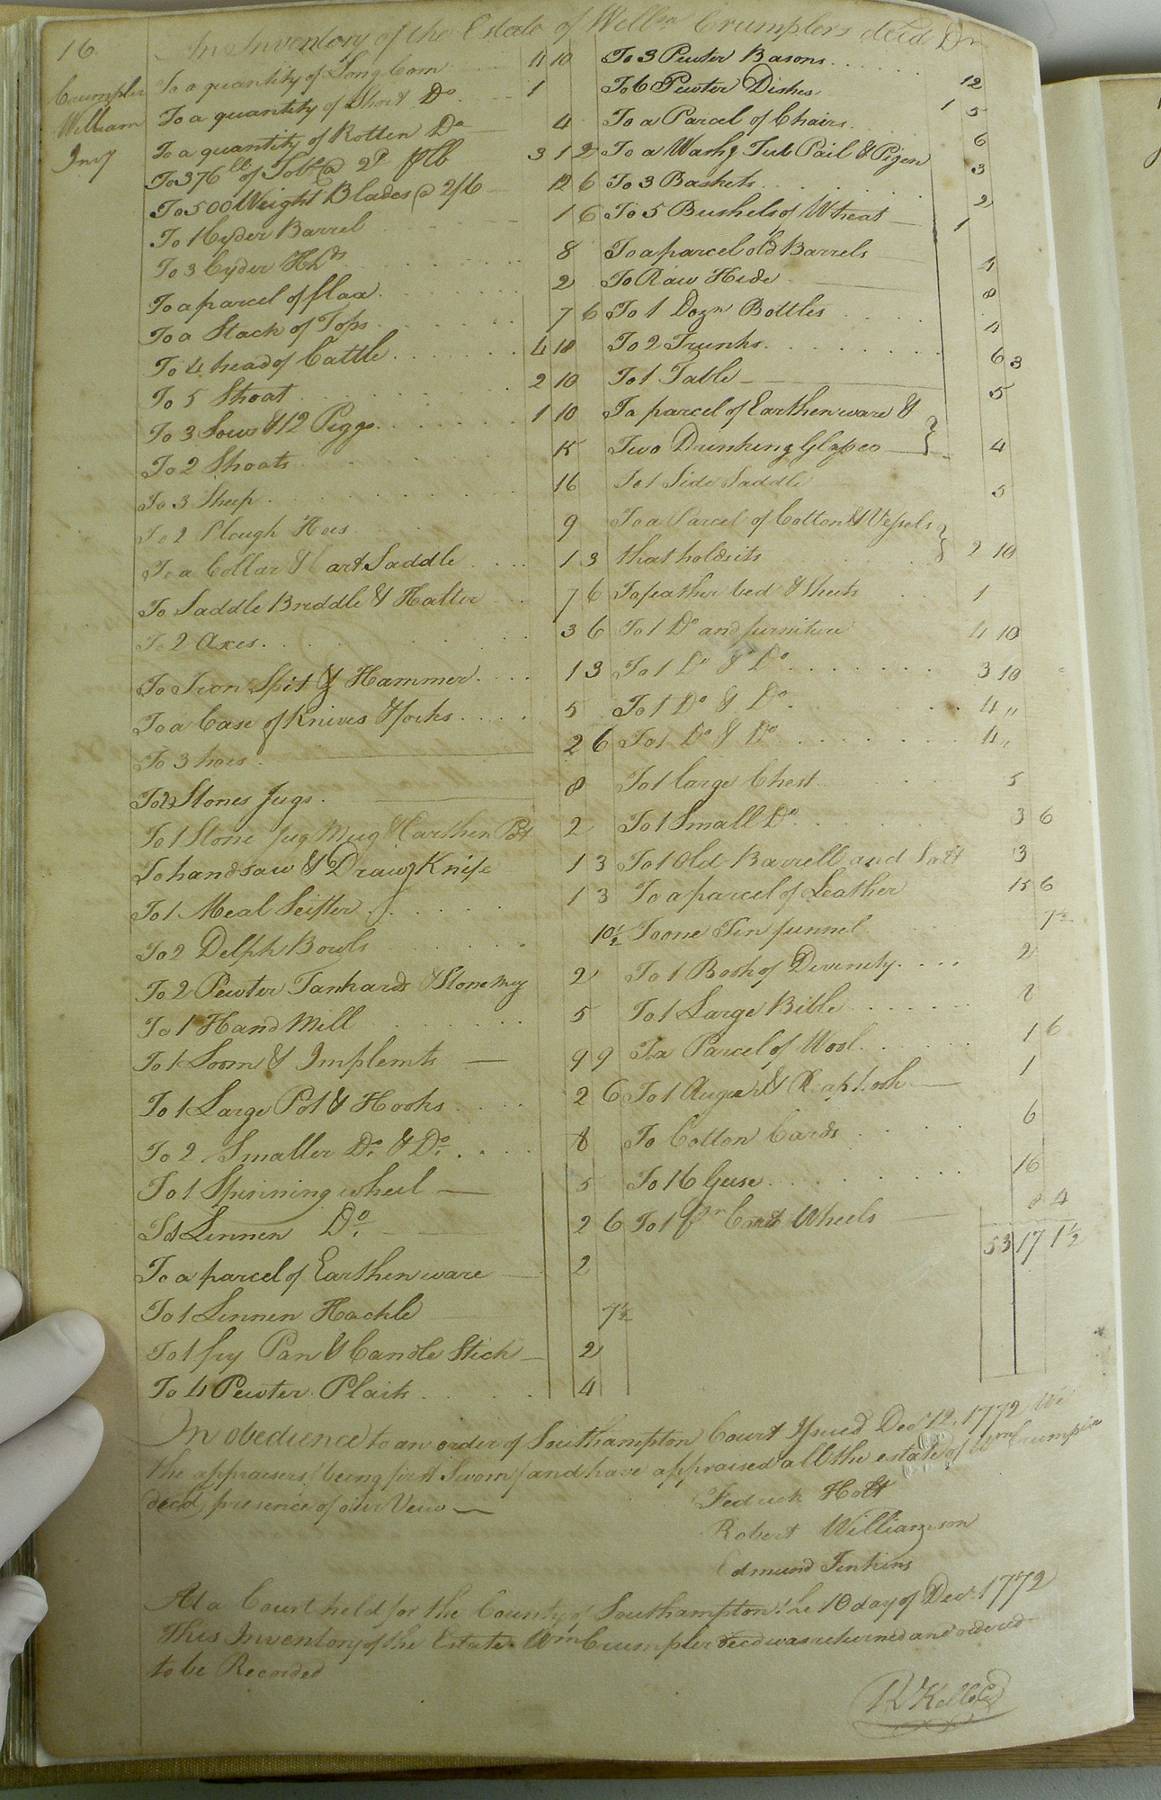 16
Crumpler
William
Invy
An Inventory of the Estate of Willm Crumplers decd Dr
To a quantity of Long Corn 4 10
To a quantity of Short Do 1
To a quantity of Rotten Do 4
To 376 lb of Tobo @ 2d p lb 3 1 2
To 500 Weight Blades @ 2/6 12 6
To 1 Cyder Barrel 1 6
To 3 Cyder Hhds 8
To a parcel of flax 2
To a Stack of Tops 7 6
To 4 head of Cattle 4 10
To 5 Shoat 2 10
To 3 Sows & 12 Piggs 1 10
To 2 Shoats 15
To 3 Sheep 16
To 2 Plough Hoes 9
To a Collar & Cart Saddle 1 3
To Saddle Briddle & Halter 7 6
To 2 Axes 3 6
To Iron Spit & Hammer 1 3
To a Case of Knives & forks 5
To 3 hoes 2 6
To 2 Stones Jugs 8
To 1 Stone jug Mug & Earthen Pot 2
To handsaw & Drawg Knife 1 3
To 1 Meal Seifter 1 3
To 2 Delph Bowls 10½
To 2 Pewter Tankards & Stone Mug 2
To 1 Hand Mill 5
To 1 Loom & Implemts 9 9
To 1 Large Pot & Hooks 2 6
To 2 Smaller Do & Do 8
To 1 Spinning wheel 5
To 1 Linnen Do 2 6
To a parcel of Earthen ware 2
To 1 Linnen Hackle 7½
To 1 fry Pan & Candle Stick 2
To 4 Pewter Plaits 4
To 3 Pewter Basons 12
To 6 Pewter Dishes 1 5
To a Parcel of Chairs 6
To a Washg Tub Pail & Pigen 3
To 3 Baskets 2
To 5 Bushels of Wheat 1
To a parcel old Barrels 4
To Raw Hide 8
To 1 Dozn Bottles 4
To 2 Trunks 6 3
To 1 Table 5
To parcel of Earthen ware &
Two Drinking Glasses 4
To 1 Side Saddle 5
To a Parcel of Cotton & Vessels
that holds its 2 10
To feather bed & sheets 1
To 1 Do and furniture 4 10
To 1 Do & Do 3 10
To 1 Do & Do 4 "
To 1 Do & Do 4 "
To 1 large Chest 5
To 1 Small Do 3 6
To 1 Old Barrell and Salt 3
To a parcel of Leather 15 6
To one Tin funnel 7½
To 1 Book of Devinity 2
To 1 Large Bible
To a Parcel of Wool 1 6
To 1 Auger & 1
To Cotton Cards 6
To 16 Geese 16
To 1 pr Cart Wheels 8 4
53 17 1½
In obedience to an order of Southampton Court Issued Decr 12, 1772 We
the appraisers (being first Sworn) and have appraised all the estate of Wm Crumpler
decd, presence of our View
Fedrick Holt
Robert Williamson
Edmund Jenkins
At a Court held for the County of Southampton the 10 day of Decr. 1772
This Inventory of the Estate Wm Crumpler decd was returned and ordered
to be Recorded
R Kello Cl